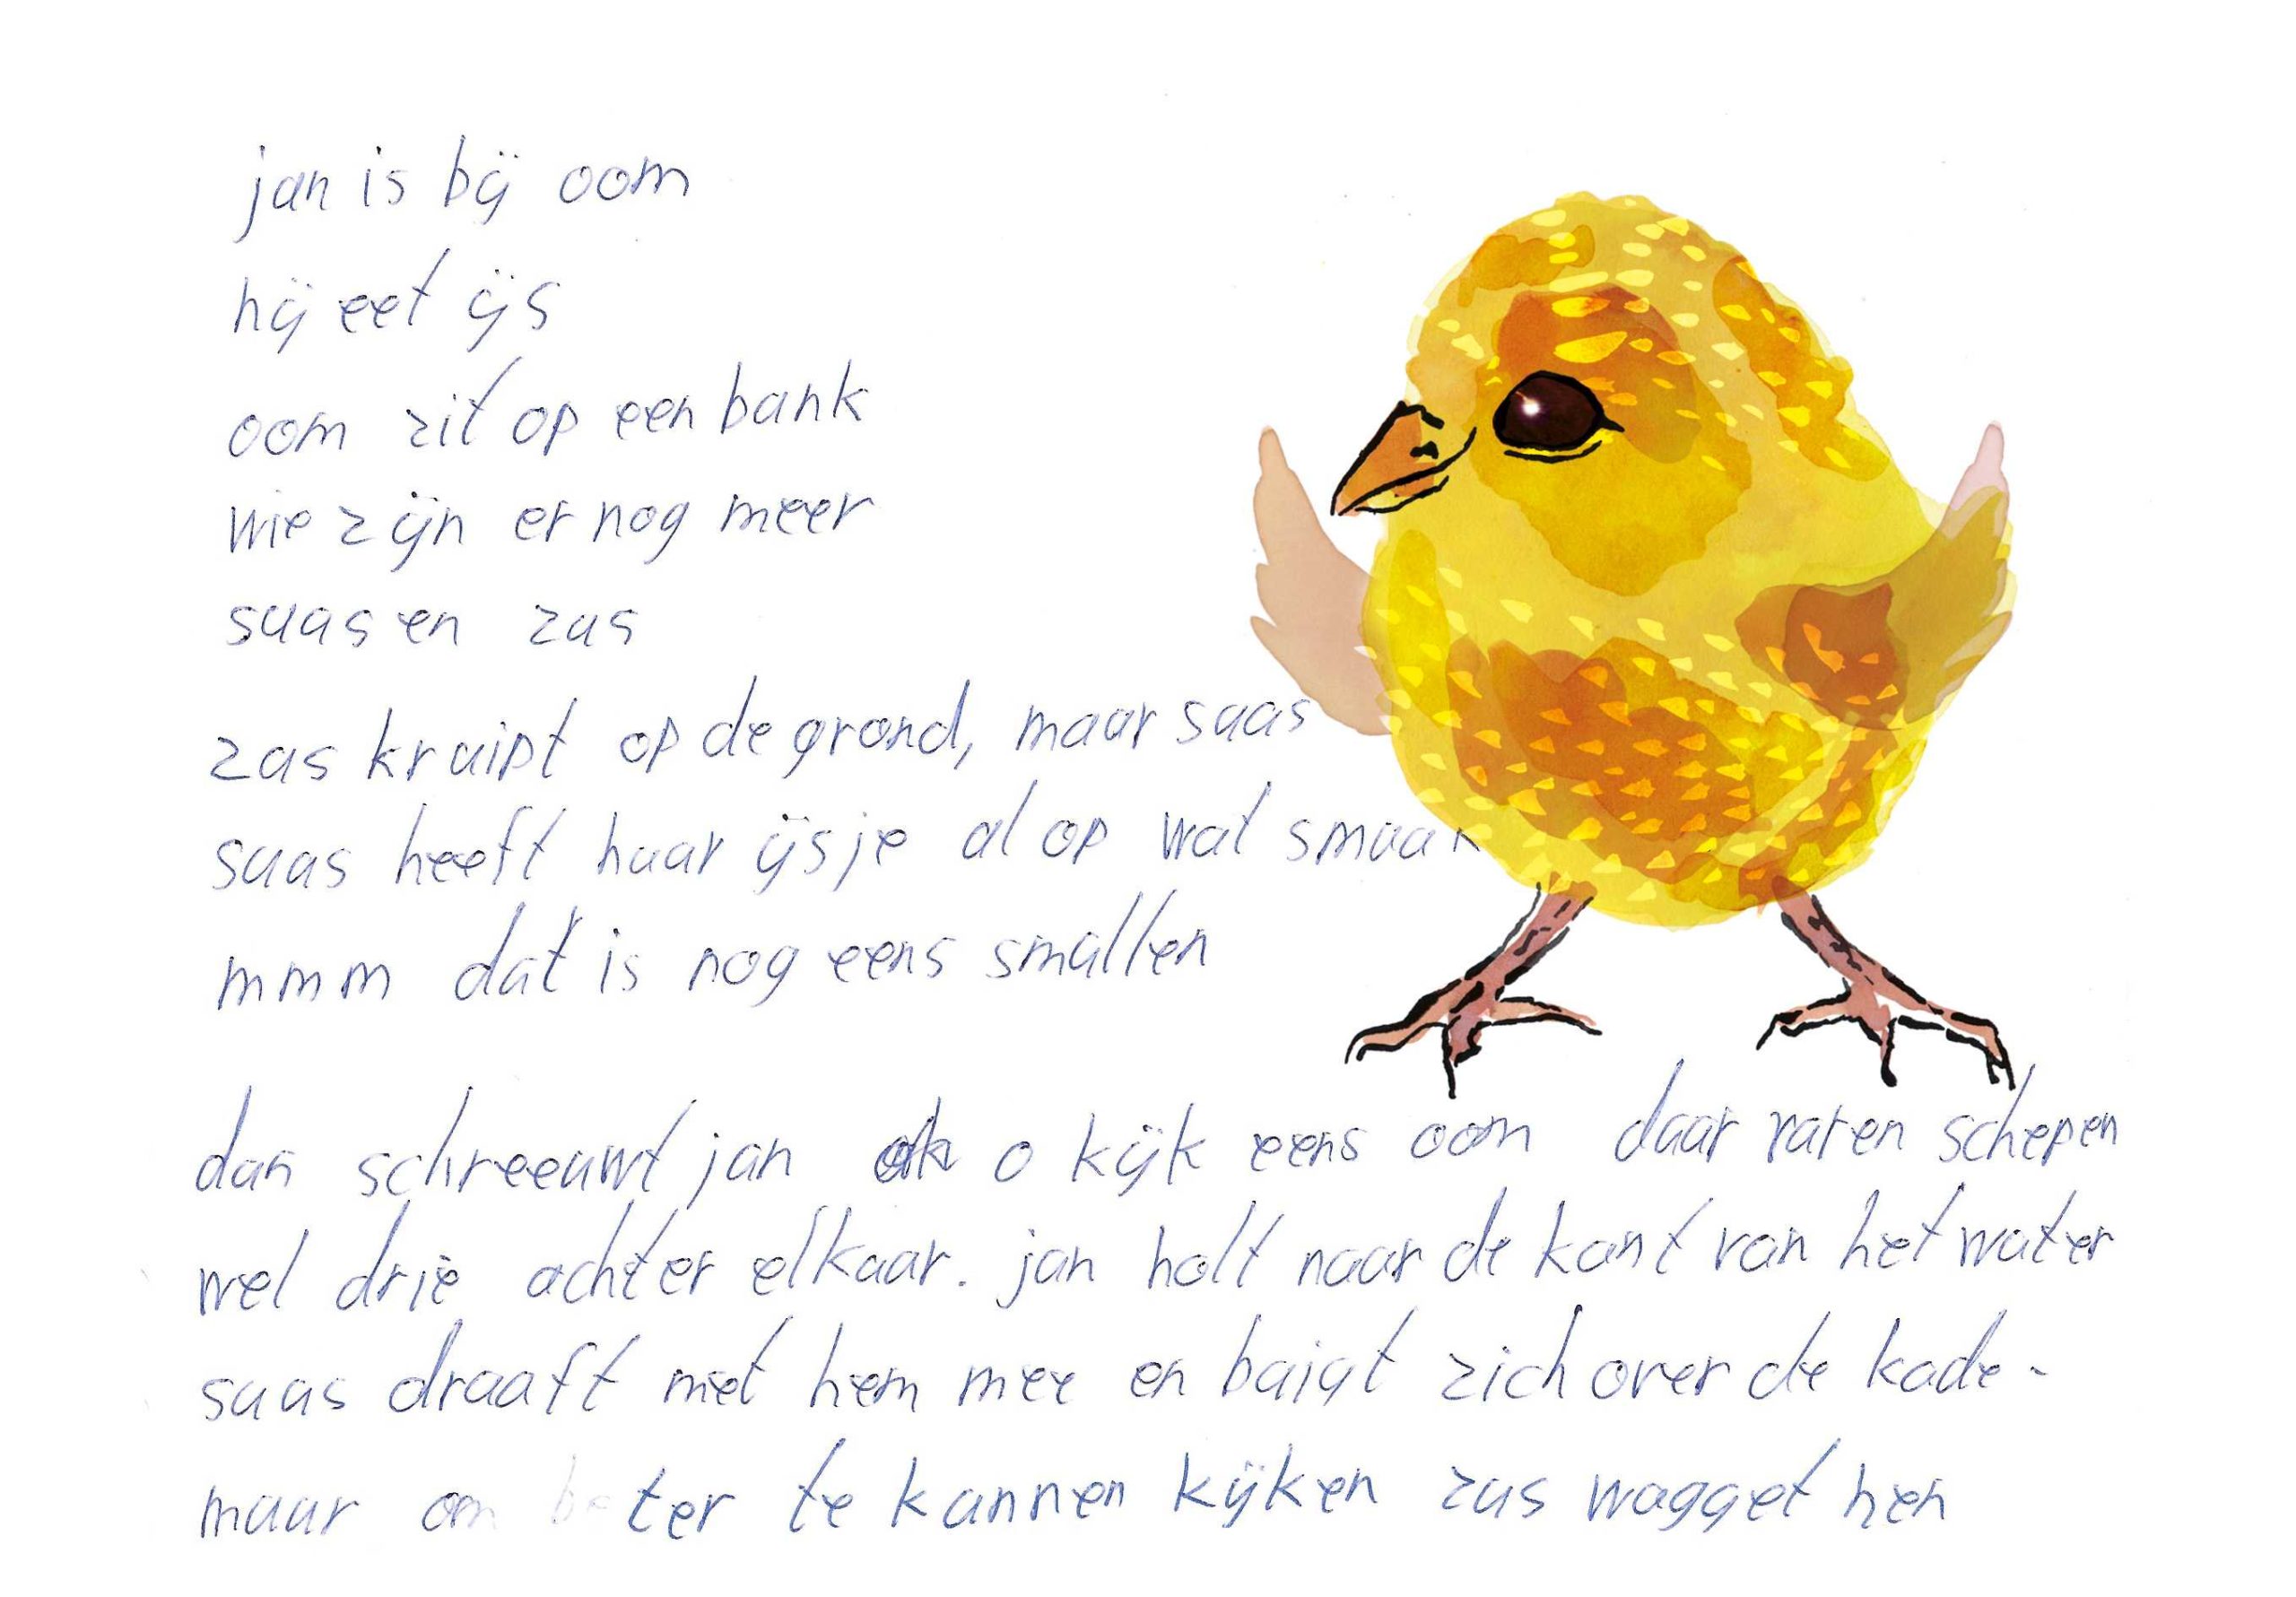 jan is bij oom
hij eet ijs
oom zit op een bank
wie zijn er nog meer
suus en zus
zus kruipt op de grond, maar suus
suus heeft haar ijsje al op wat smaak
mmm dat is nog eens smullen
dan schreeuwt jan o kijk eens oom daar varen schepen
wel drie achter elkaar. jan holt naar de kant van het water
suus draaft met hem mee en buigt zich over de kade-
muur om beter te kunnen kijken zus wagget hen